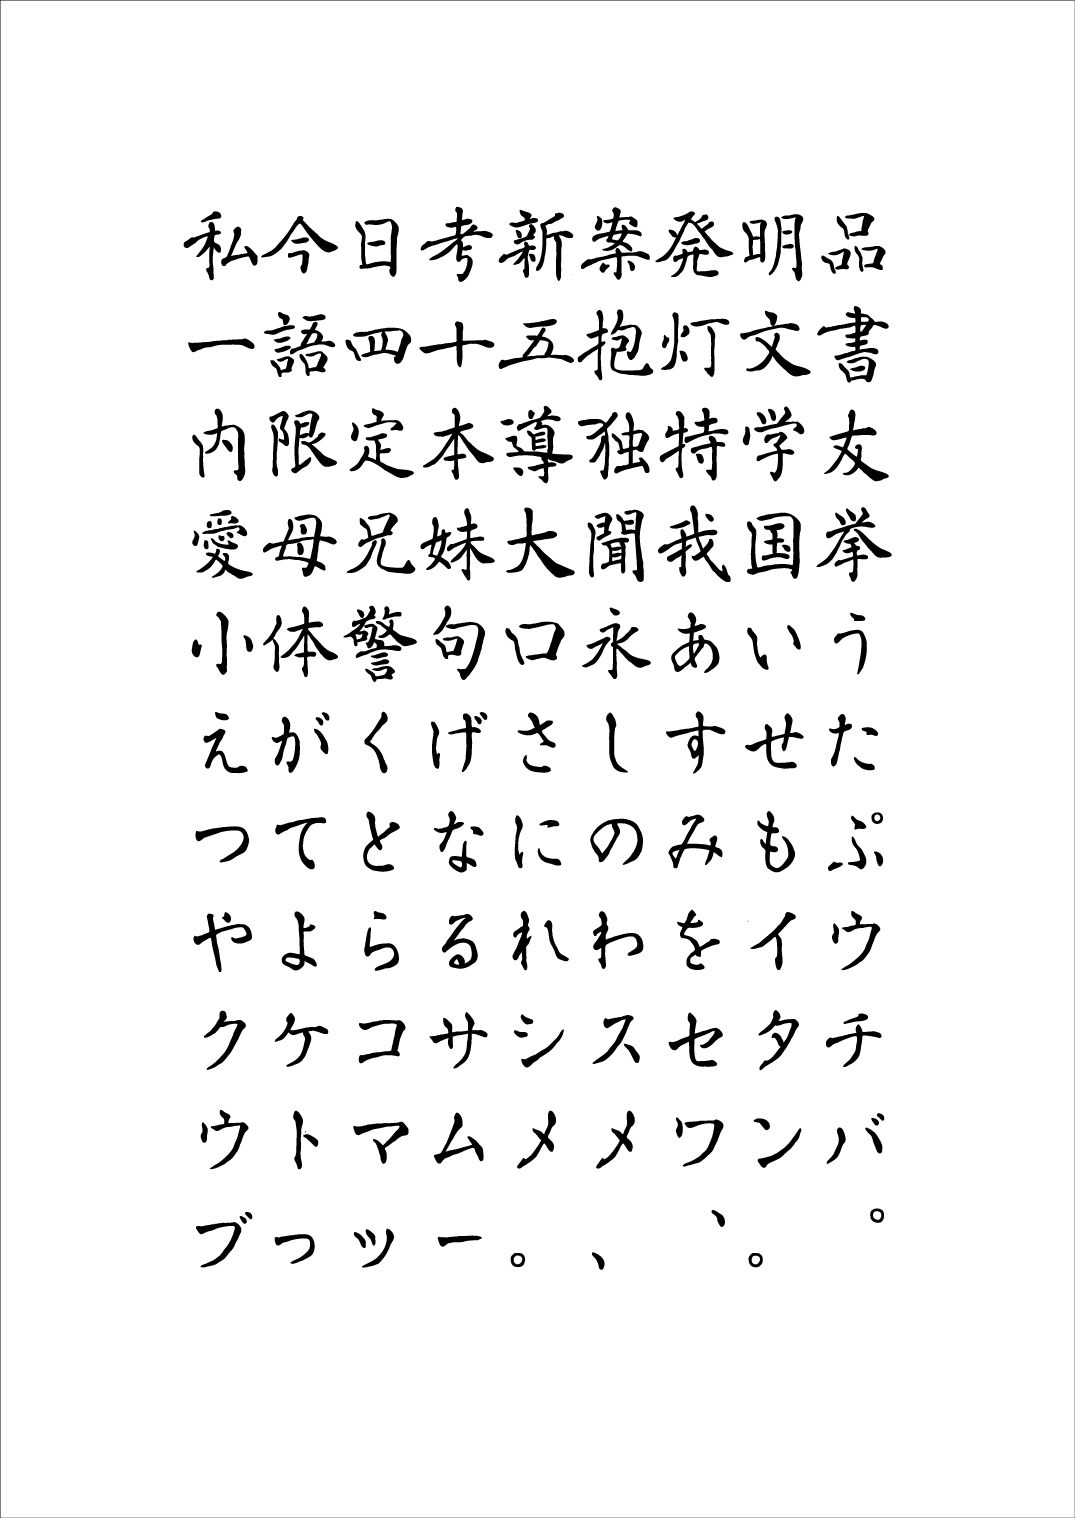 私今日考新案発明品
一語四十五抱灯文書
内限定本導独特学友
愛母兄妹大聞我国挙
小体警句口永あいう
えがくげさしすせた
つてとなにのみもぷ
やよらるれわをイウ
クケコサシスセタチ
ウトマムメメワンバ
ブっッー。、、。。